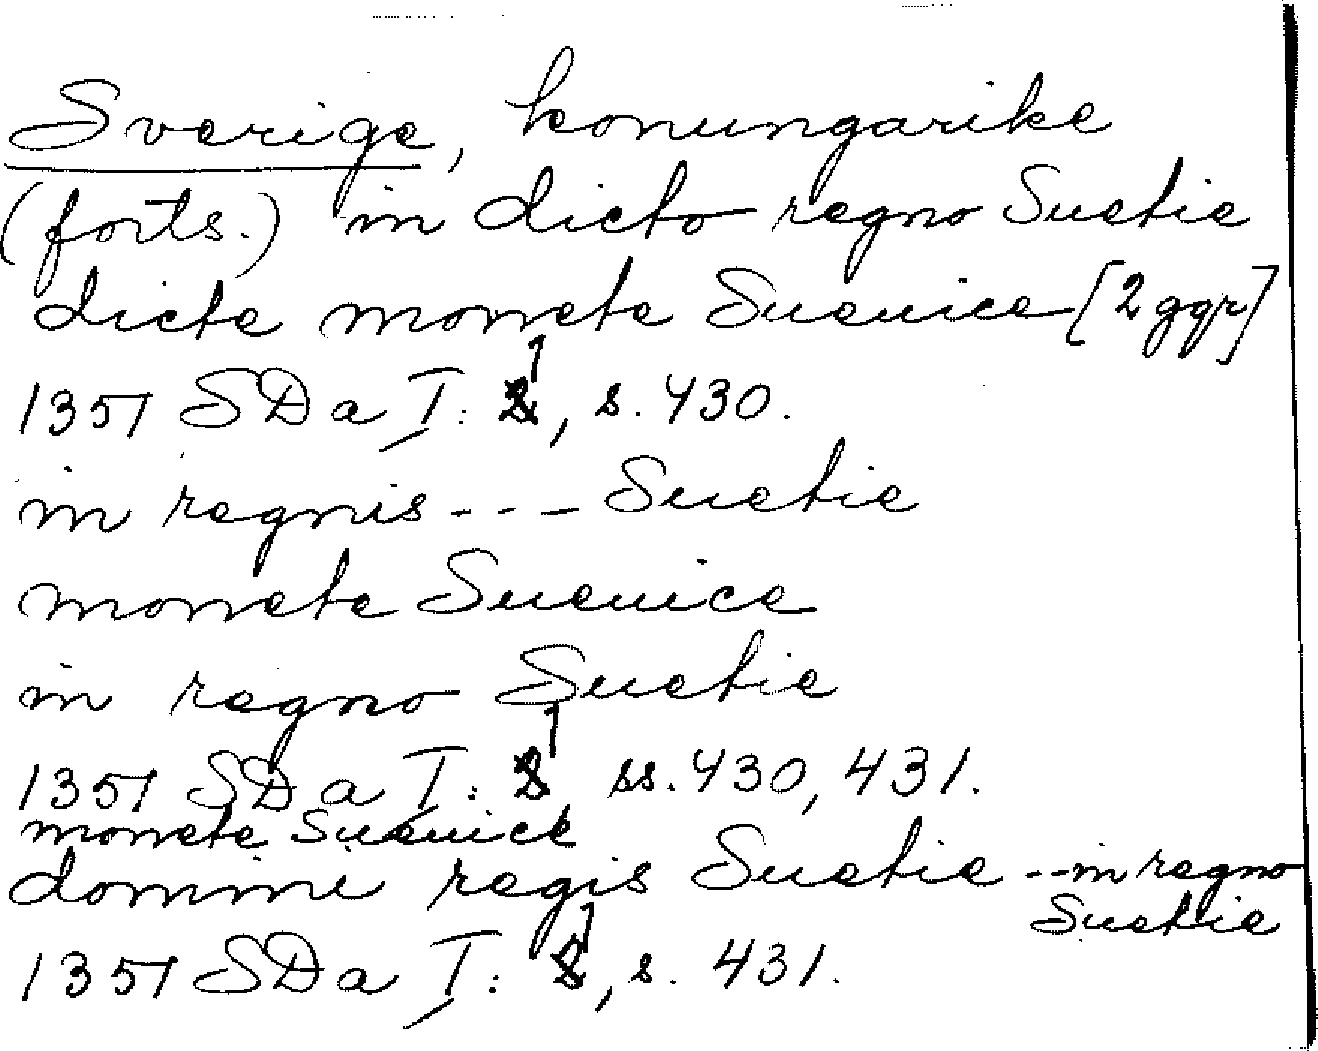 Sverige, konungarike
(forts.) in dicto regno Suetie
dicte monete Sueuice [2 ggr]
1351 SDa I: 1, s. 430.
in regnis --- Suetie
monete Sueuice
in regno Suetie
1351 SDa I: 1, ss. 430, 431.
monete Sueuice
domini regis Suetie -- in regno
Suetie
1351 SDa I: 1, s. 431.